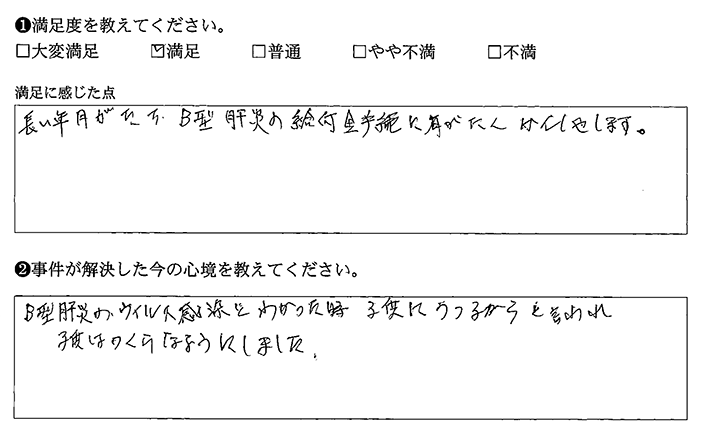 ❶満足度を教えてください。
□大変満足 ☑満足 □普通 □やや不満 □不満
満足に感じた点
長い年月がたち B型肝炎の給付金 します。
❷事件が解決した今の心境を教えてください。
B型肝炎のウイルス感染とわかった時 子供にうつるからと言われ
子供はつくらなようにしました。